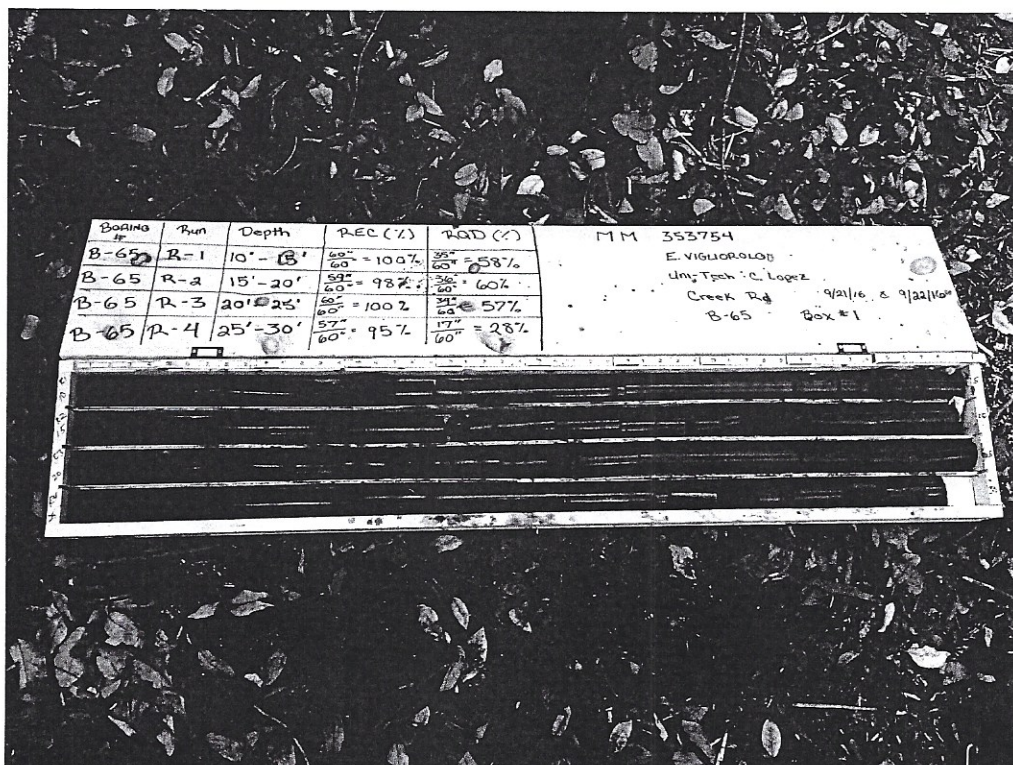 BORING # Run Depth REC (%) RQD (%)
B-65 R-1 10' - 15' 60"/60" = 100% 35"/60" = 58%
B-65 R-2 15'-20' 59"/60" = 98% 36"/60" = 60%
B-65 R-3 20'-25' 60"/60" = 100% 34"/60" = 57%
B-65 R-4 25'-30' 57"/60" = 95% 17"/60" = 28%
MM 353754
E. VIGLIOROLO
Uni-Tech: C. Lopez
Creek Rd 9/21/16 & 9/22/16
B-65 Box #1